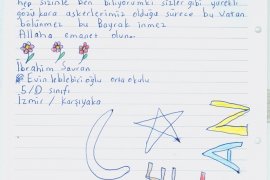 hep sizinle ben biliyorumki sizler gibi yürekli
gözü kara askerlerimiz olduğu sürece bu Vatan
bölünmez bu Bayrak inmez
Allaha emanet olun.
İbrahim Savran
Evin leblebicioğlu orta okulu
5/D sınıfı
İzmir / Karşıyaka